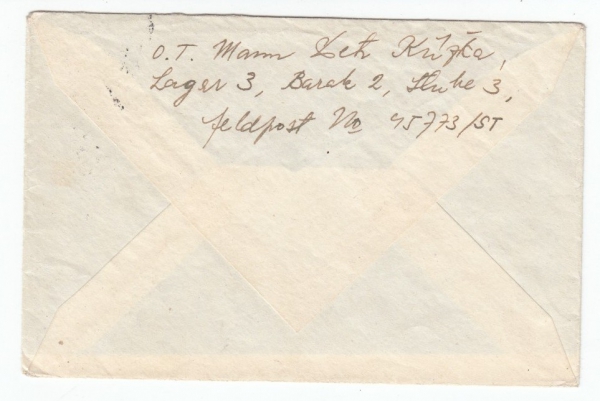 O.T. Mann Křížka,
Lager 3, Barak 2, Stube 3,
feldpost No 45773/ST